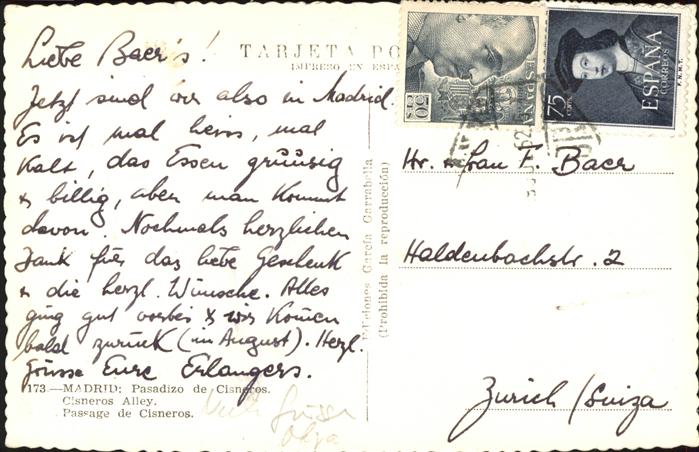 Liebe Baer's!
TARJETA PO
IMPRESO EN ESPA
Jetzt sind wir also in Madrid.
Es ist mal heiss, mal
kalt, das Essen grüüsig
& billig, aber man kommt
davon. Nochmals herzlichen
Dank für das liebe Geschenk
& die herzl. Wünsche. Alles
ging gut vorbei & wir kommen
bald zurück (im August). Herzl.
Grüsse Eure Erlangers.
173.—MADRID: Pasadizo de Cisneros.
Cisneros Alley.
Passage de Cisneros.
Olga
Ediciones García Garrabella
(Prohibida la reproducción)
50 CTS
ESPAÑA
75
CTS
ESPAÑA
CORREOS
F.N.M.T.
Hr. & Frau F. Baer
Haldenbachstr. 2
Zürich / Suiza